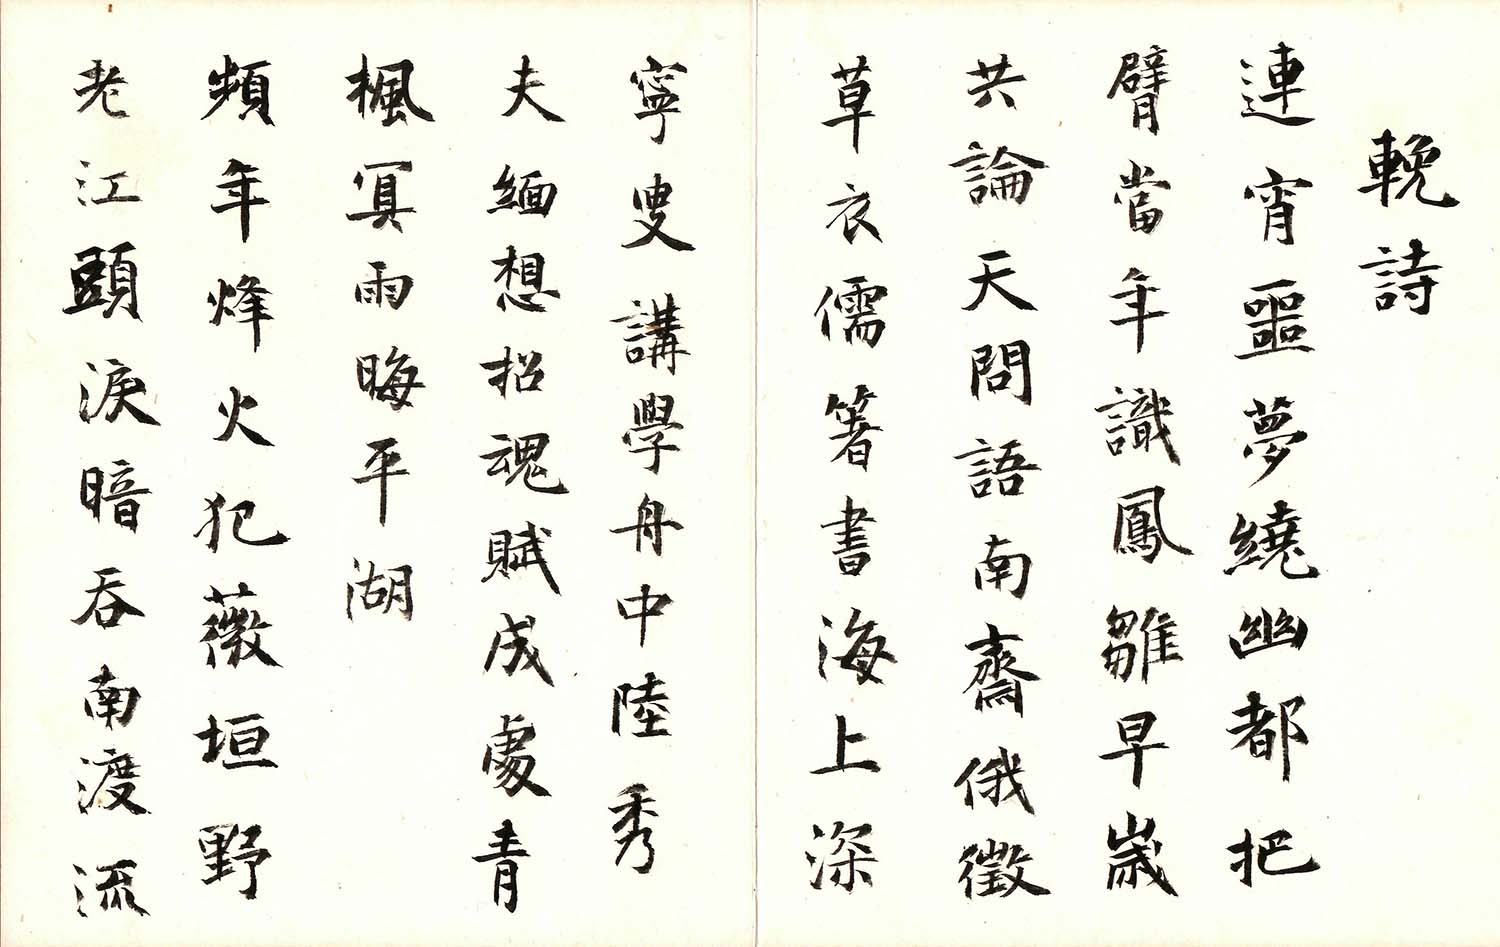 輓詩
連宵噩夢繞幽都把
臂當年識鳳雛早歲
共論天問語南齋俄徵
草衣儒箸書海上深
寧叟講學舟中陸秀
夫緬想招魂賦成處青
楓冥雨晦平湖
頻年烽火犯薇垣野
老江頭淚暗吞南渡流